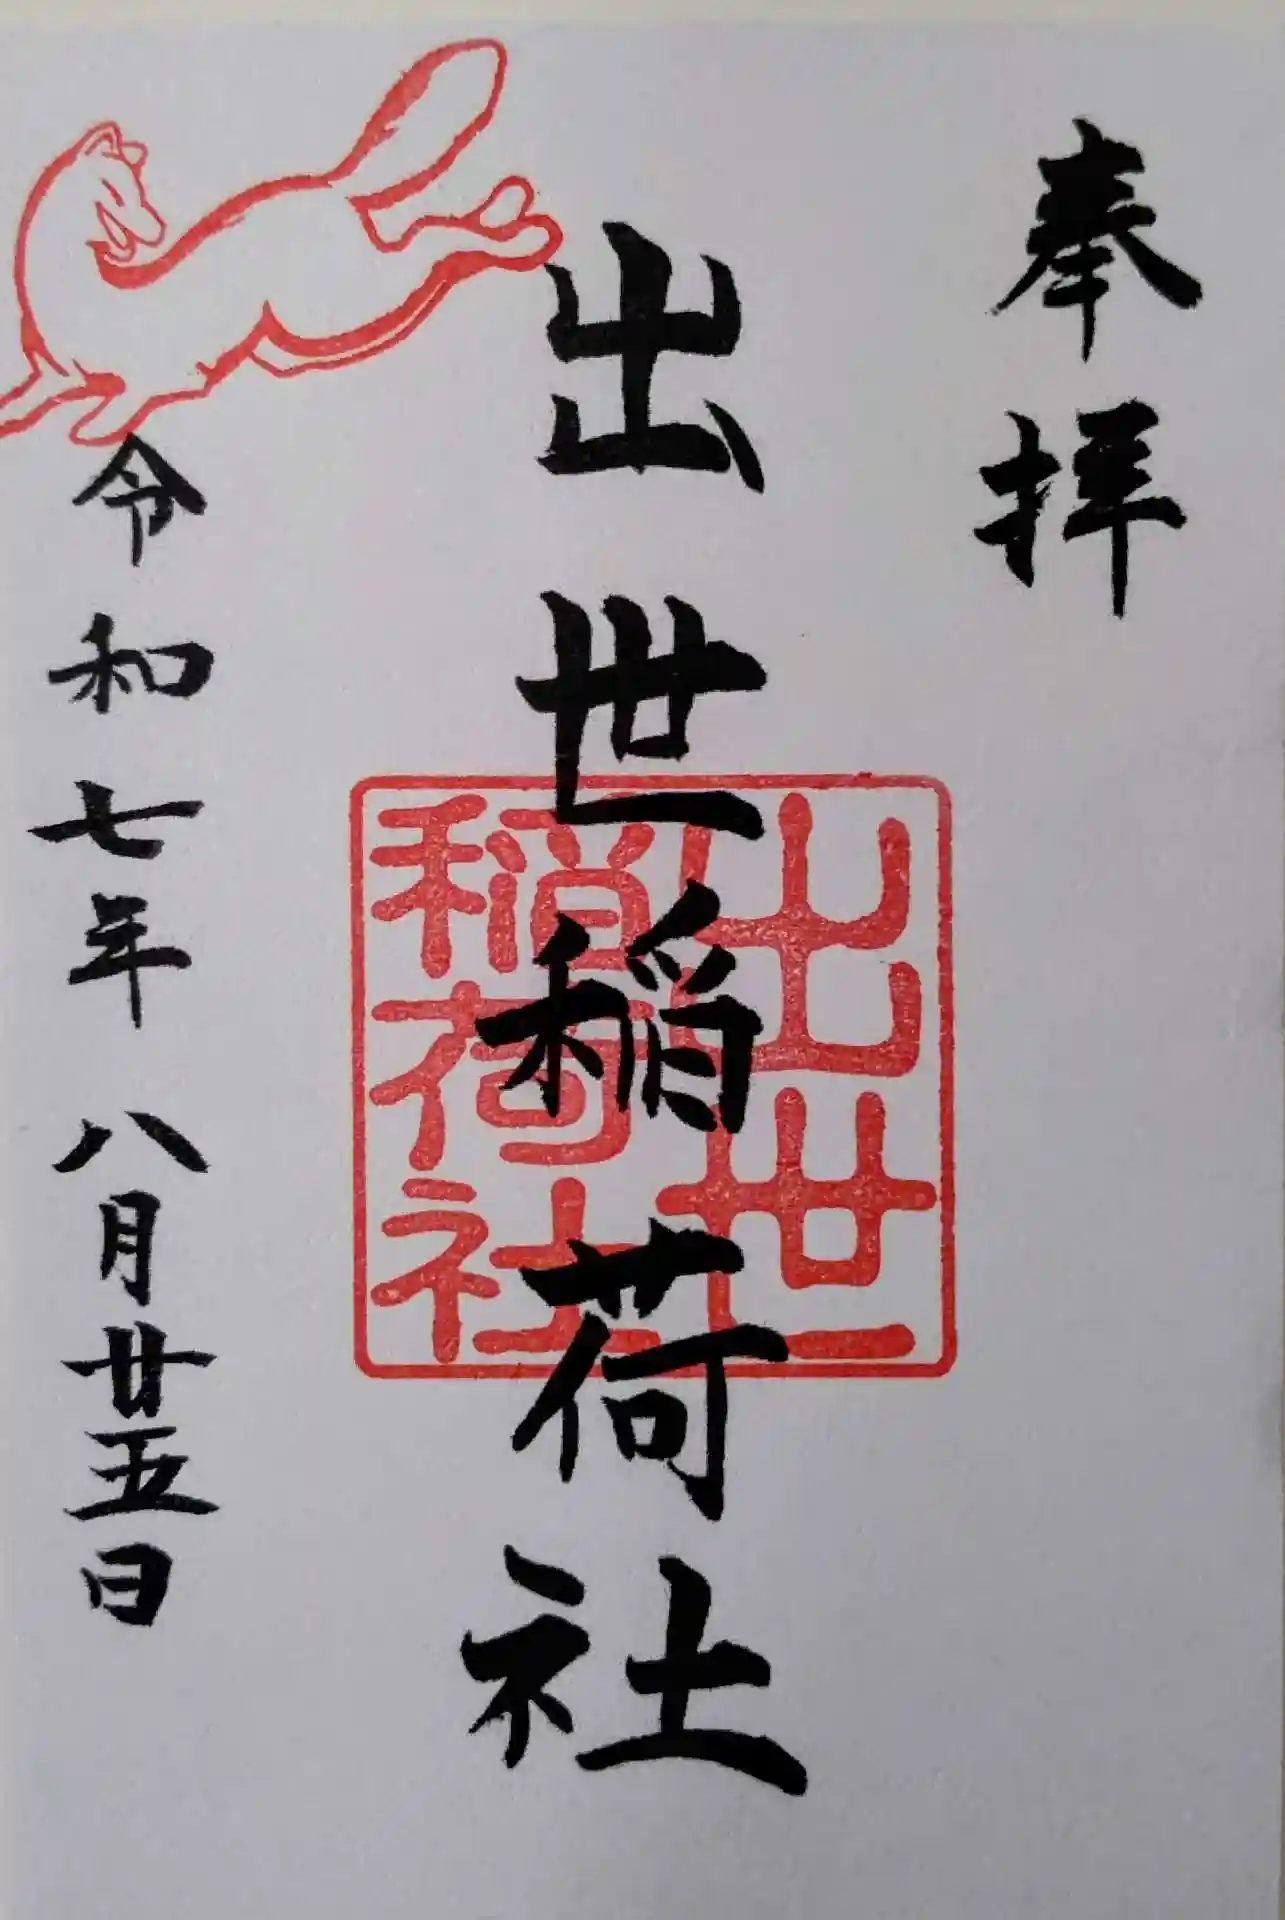 奉拝
出世稲荷社
出世
稲荷社
令和七年八月廿五日